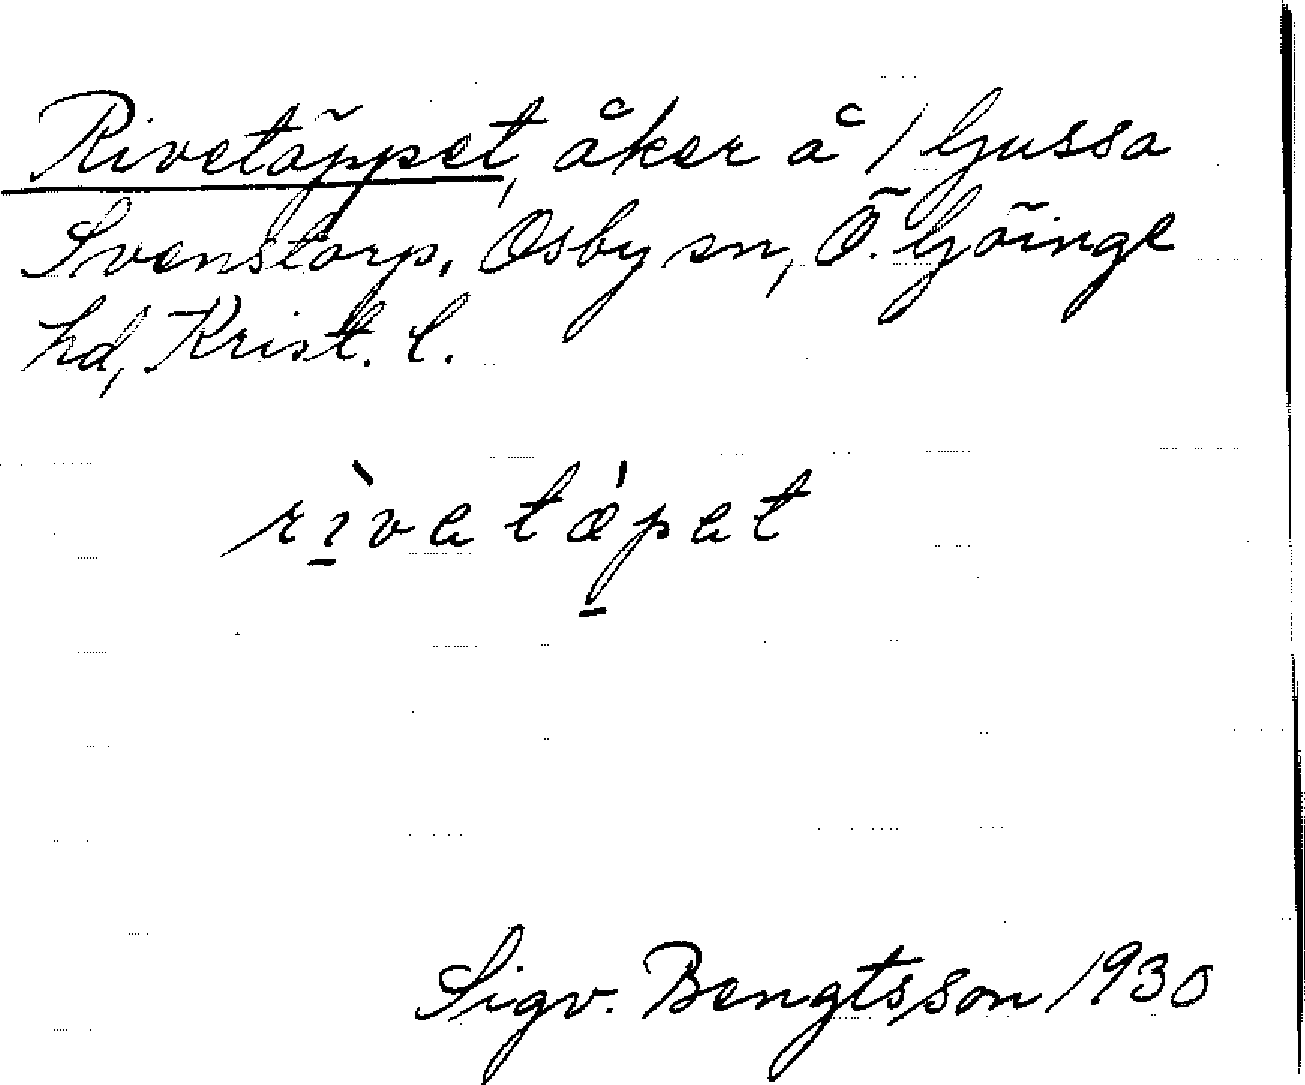 Rivetäppet, åker å 1 Gussa
Svenstorp, Osby sn, Ö. Göinge
hd, Krist. l.
rìvetǽpet
Sigv. Bengtsson 1930